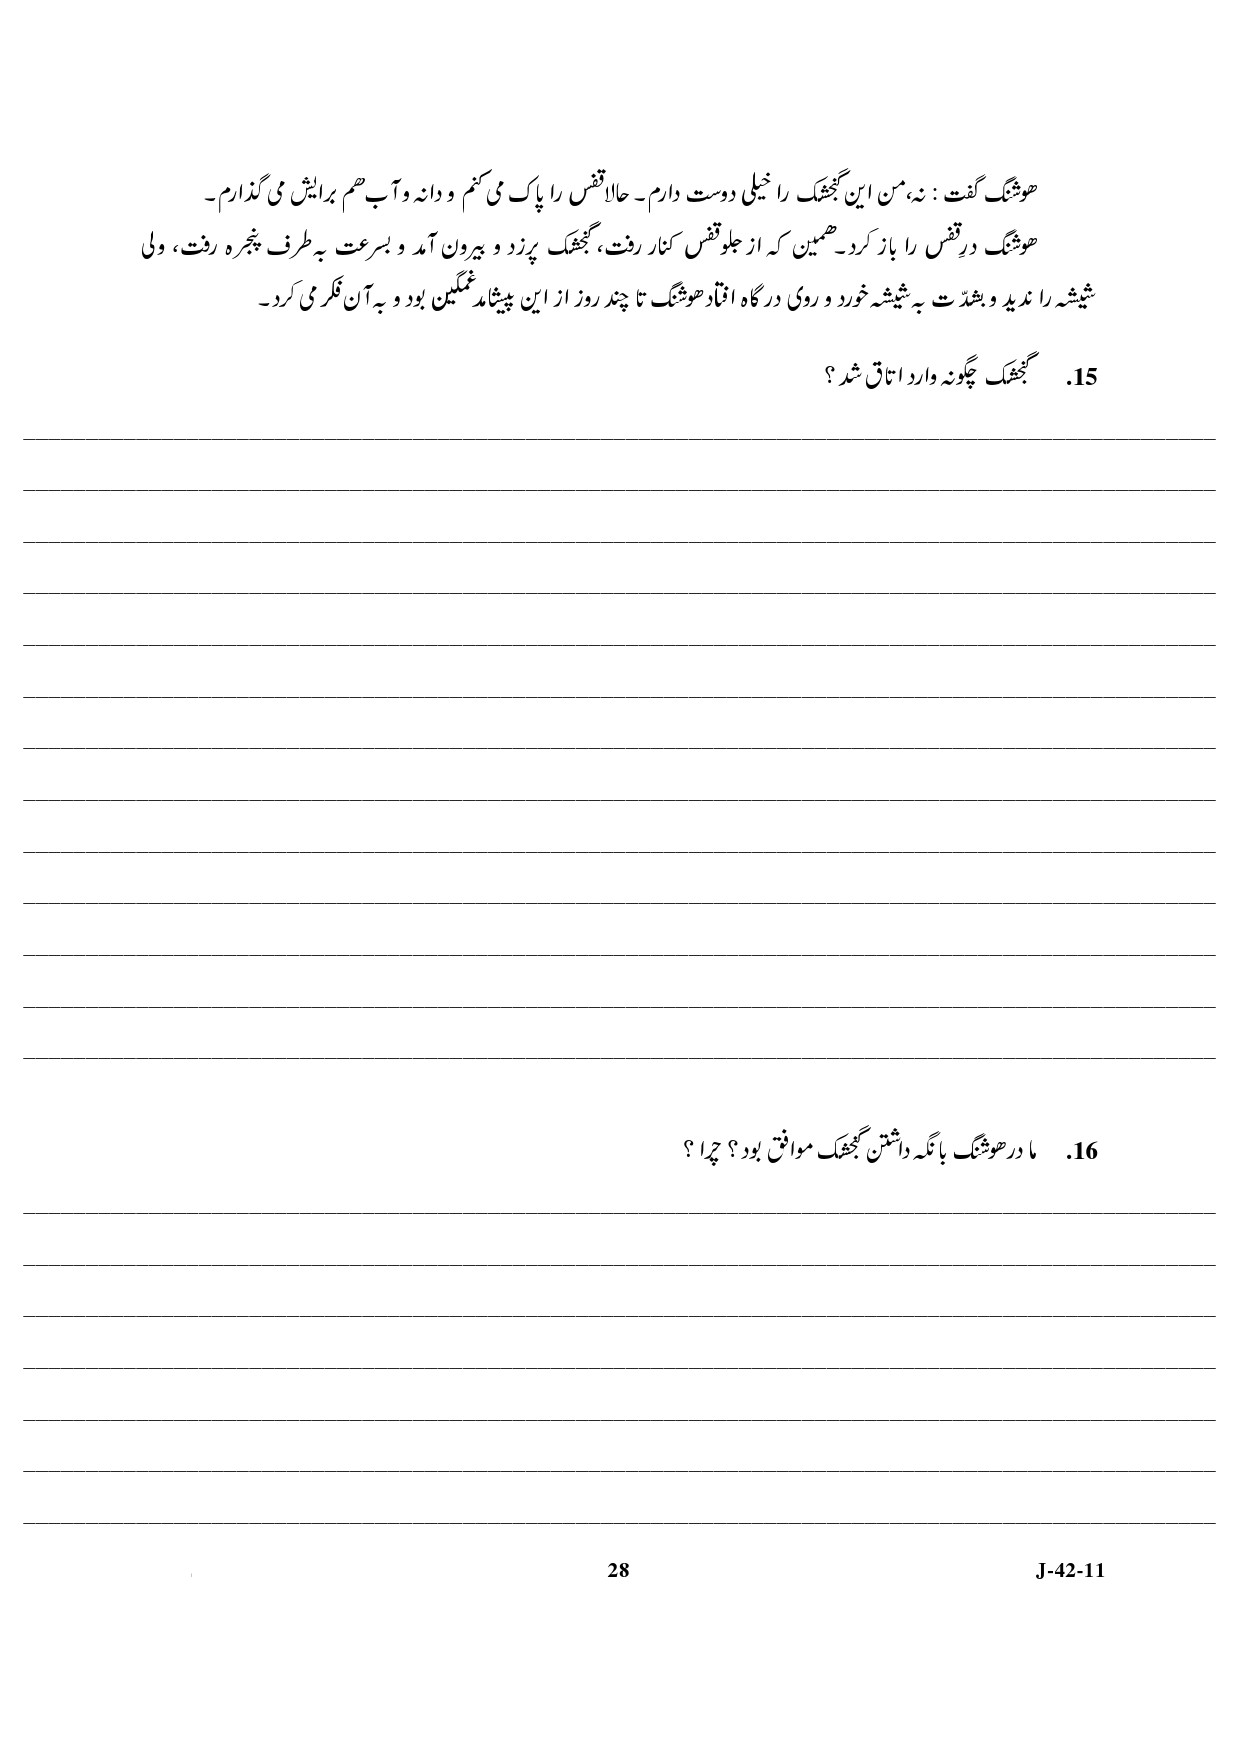 هوشنگ گفت : نه،من این گنجشک را خیلی دوست دارم۔ حالا قفس را پاک می کنم و دانه و آب هم برایش می گذارم۔
هوشنگ درِ قفس را باز کرد۔ همین که از جلو قفس کنار رفت، گنجشک پرزد و بیرون آمد و بسرعت به طرف پنجره رفت، ولی
شیشه را ندید و بشدّت به شیشه خورد و روی درگاه افتاد هوشنگ تا چند روز از این پیشامد غمگین بود و به آن فکر می کرد۔
15. گنجشک چگونه وارد اتاق شد ؟
16. مادر هوشنگ با نگه داشتن گنجشک موافق بود ؟ چرا ؟
28 J-42-11